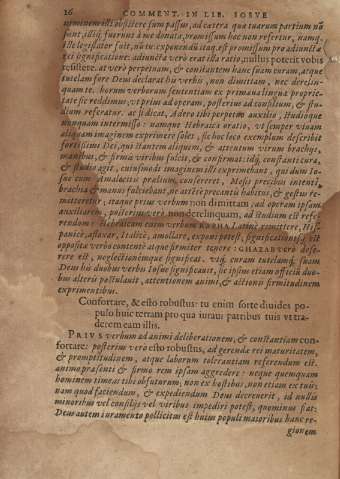 26 COMMENT. IN LIB. IOSVE
neminem isti obsistere sum passus, ad cætera quæ tuarum partium nõ
sunt, illisq́; fuerunt à me donata, promissum hoc non refertur, namq́;
iste legislator fuit, nõ tu: exponendũ itaq; est promissum pro adiunctæ
rei significatione: adiunctæ verò erat illa ratio, nullus poterit vobis
resistere. at verò perpetuam, & constantem hanc suam curam, atque
tutelam fore Deus declarat his verbis, non dimittam, nec derelin-
quam te. horum verborum sententiam ex primæ linguæ proprie-
tate sic reddimus, vt prius ad operam, posterius ad consilium, & stu-
dium referatur. ac si dicat, Adero tibi perpetuo auxilio, studioque
nunquam intermisso: namque Hebraica oratio, vt semper vivam
aliquam imaginem exprimere solet, sic hoc loco exemplum describit
fortissimi Dei, qui stantem aliquem, & attentum virum brachys,
manibus, & firma viribus fulcit, & confirmat: idq́; constanti cura,
& studio agit, cuiusmodi imaginem illi exprimebant, qui dum Io-
sue cum Amalecitis prælium consereret, Mosis precibus intenti,
brachia & manus fulciebant, ne ab ire precantis habitus, & gestus re-
mitteretur: itaque prius verbum non dimittam, ad operam ipsam,
auxilium, posterius verò non derelinquam, ad studium est refe-
rendum: Hebraicum enim verbum RAPHA Latinè remittere, His-
panicè, afloxar, Italicè, amollare, exponi potest, significationis est
opposita verbo contentè atque firmiter tenere: GHAZAB verò dese-
rere est, neglectionemque significat. vtq́; curam tutelamq́; suam
Deus his duobus verbis Iosue significauit, sic ipsum etiam officijs duo-
bus alteris postulauit, attentionem animi, & actionis firmitudinem
exprimentibus.
Confortare, & esto robustus: tu enim sorte diuides po-
pulo huic terram pro qua iuraui patribus tuis vt tra-
derem eam illis.
PRIVS verbum ad animi deliberationem, & constantiam con-
fortare: posterius verò esto robustus, ad gerendæ rei maturitatem,
& promptitudinem, atque laborum tolerantiam referendum est.
animo præsenti & firmo rem ipsam aggredere: neque quemquam
hominem timeas tibi obfuturum; non ex hostibus, non etiam ex tuis:
nam quod faciendum, & expediendum Deus decreuerit, id nullis
minoribus vel consilijs vel viribus impediri potest, quominus fiat:
Deus autem iuramento pollicitus est huius populi maioribus hanc re-
gionem